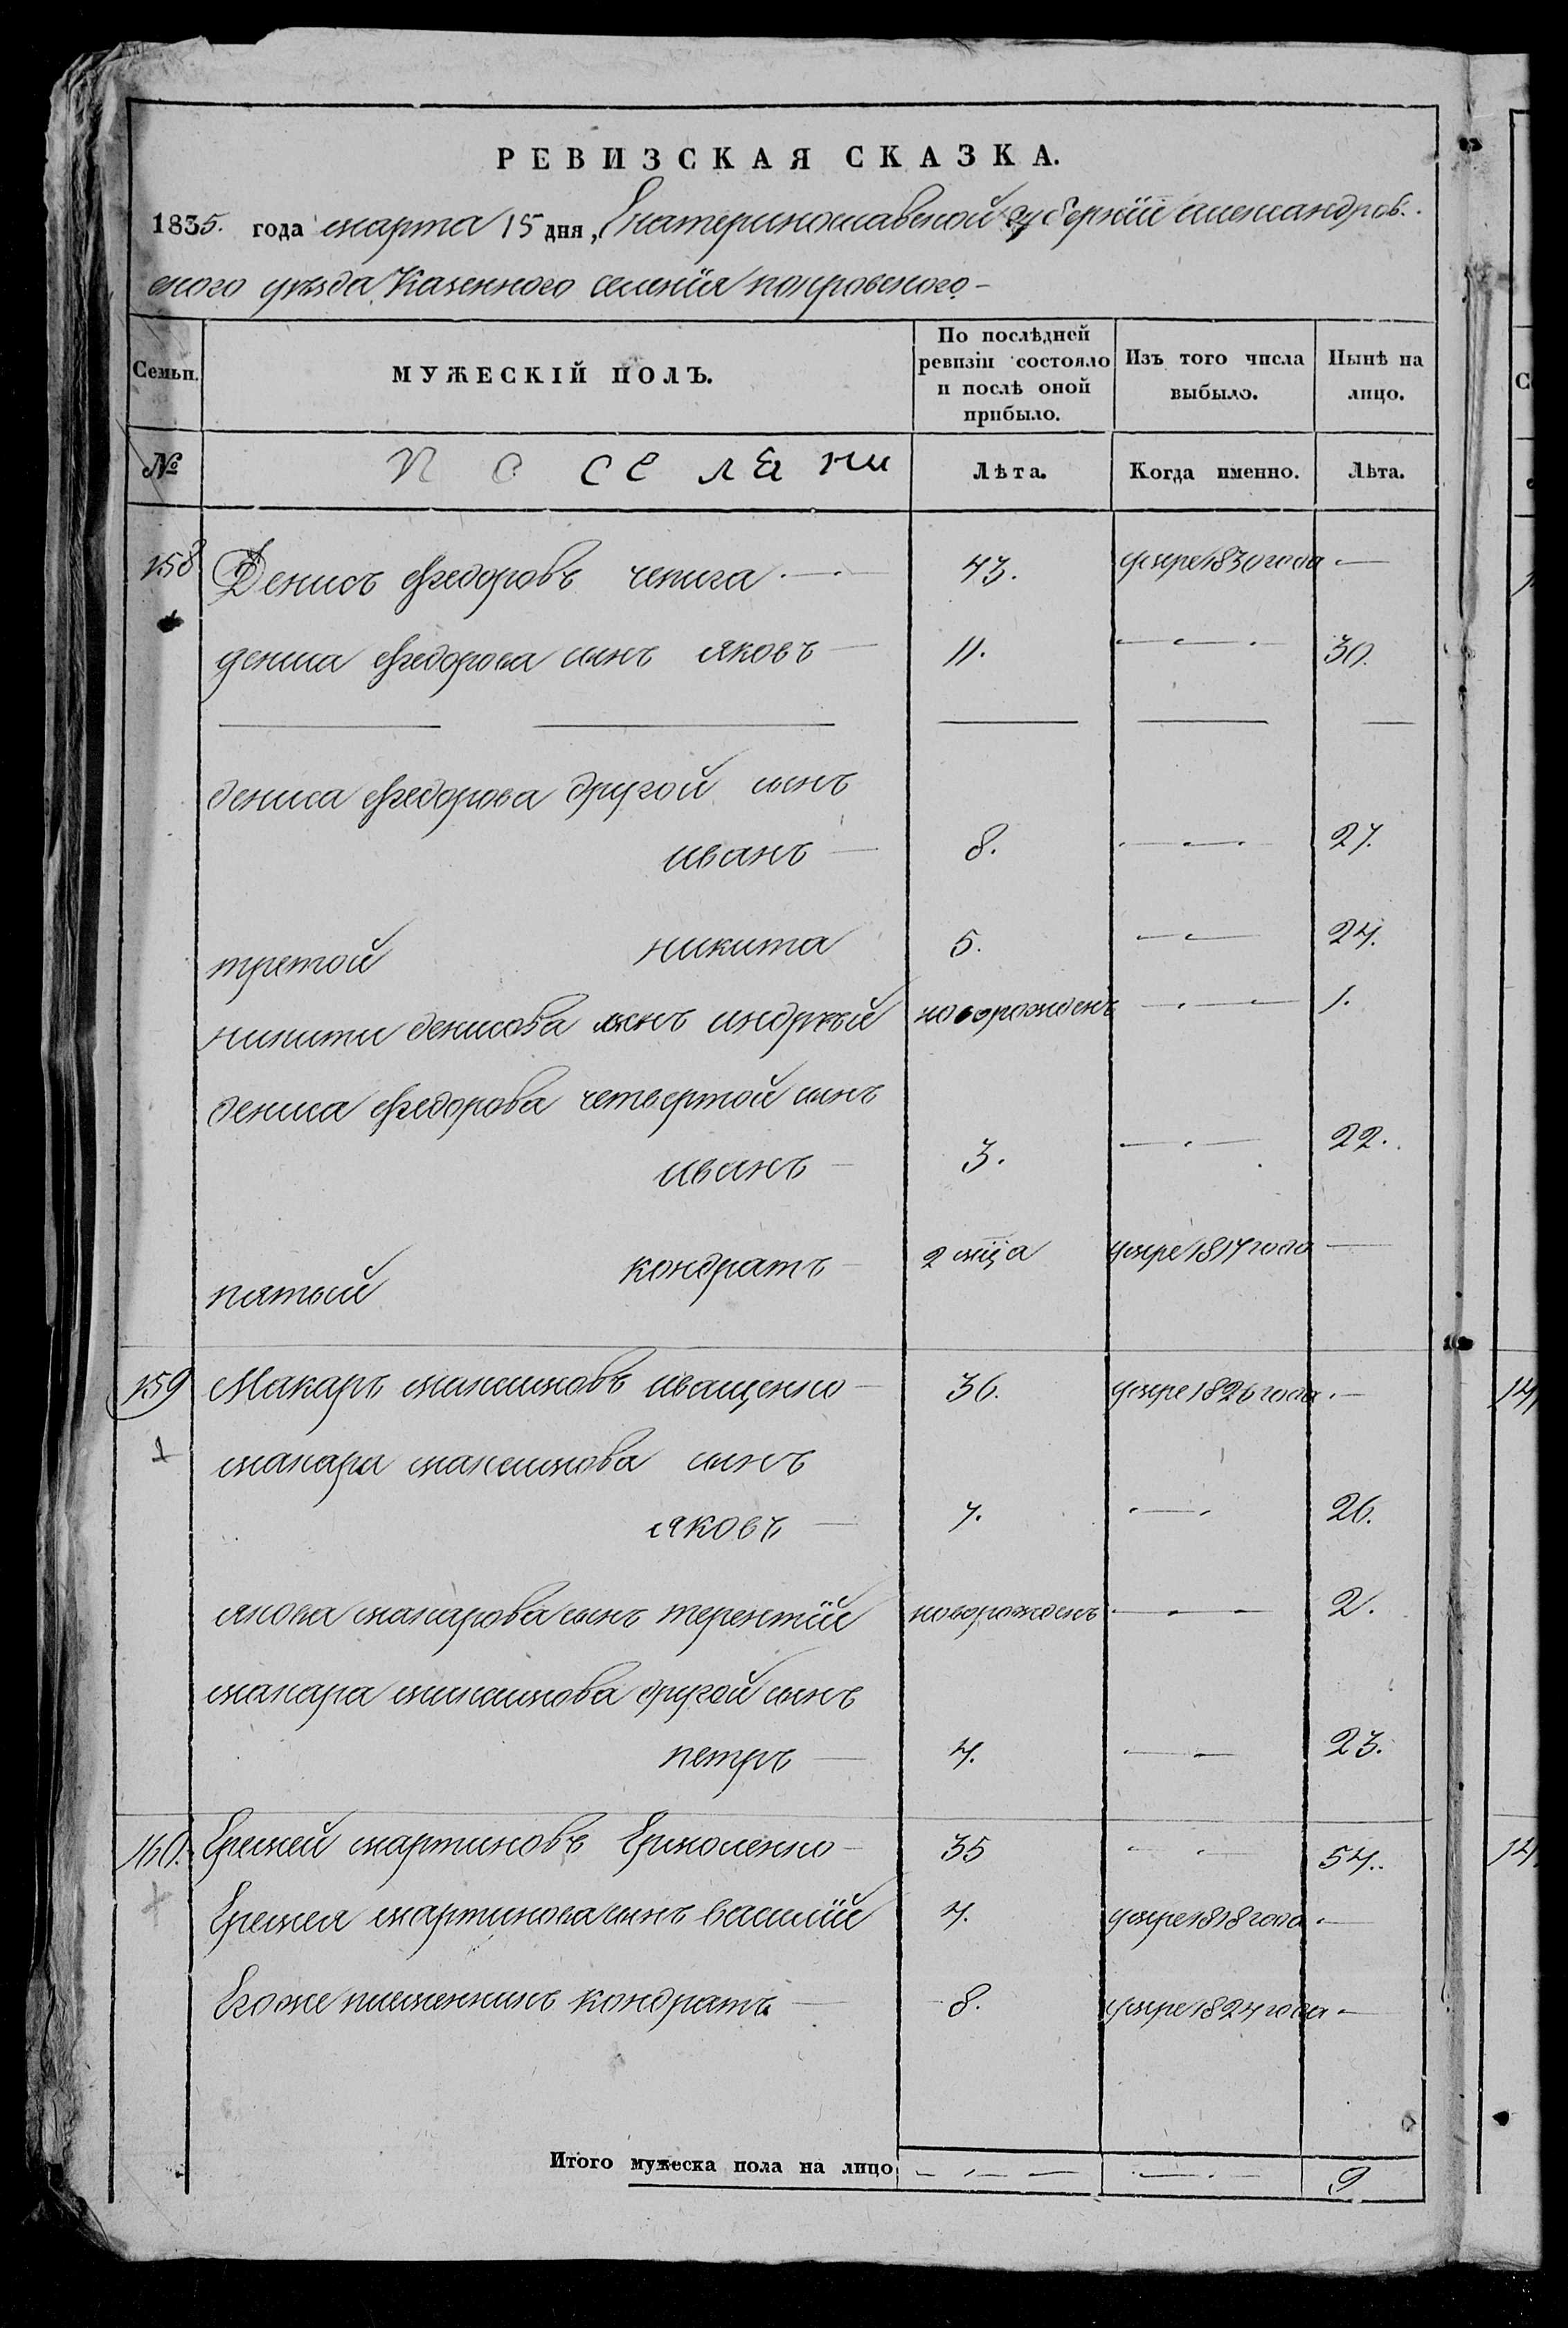 РЕВИЗСКАЯ СКАЗКА.
1835. года марта 15 дня, Екатеринославской губернїи александров.
ского уѣзда Казенного селенїя покровского -
Семьи. МУЖЕСКІЙ ПОЛЪ. По послѣдней ревизіи состояло и послѣ оной прибыло. Изъ того числа выбыло. Нынѣ на лицо.
№ поселяни Лѣта. Когда именно. Лѣта.
158 Денисъ Федоровъ чепига 43. умре 1830 года —
дениса Федорова сынъ яковъ 11. — 30.
дениса Федорова другой сынъ
иванъ 8. — 27.
третой никита 5. — 24.
никити денисова сынъ андрѣй новорожденъ — 1.
дениса Федорова четвертой сынъ
иванъ 3. — 22.
пятый кондратъ 2 мца умре 1817 года —
159 Макаръ максимовъ иващенко 36. умре 1826 года —
макара максимова сынъ
яковъ 7. — 26.
якова макарова сынъ терентїй новорожденъ — 2.
макара максимова другой сынъ
петръ 4. — 23.
160. Еремей мартиновъ Ермоленко 35 — 54.
Еремея мартинова сынъ василїй 4. умре 1818 года —
Егоже племенникъ кондратъ 8. умре 1824 года —
Итого мужеска пола на лицо — — 9